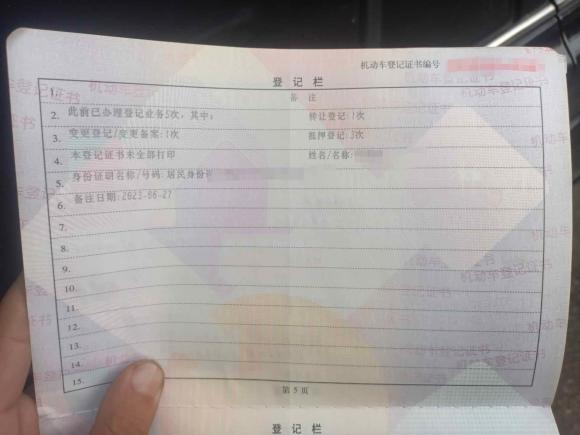 机动车登记证书编号
登 记 栏
1. 备 注
2. 此前已办理登记业务5次，其中： 转让登记:1次
3. 变更登记/变更备案:1次 抵押登记:3次
4. 本登记证书未全部打印 姓名/名称:
5. 身份证明名称/号码:居民身份证
6. 备注日期:2023-06-27
7.
8.
9.
10.
11.
12.
13.
14.
15.
第 5 页
登 记 栏